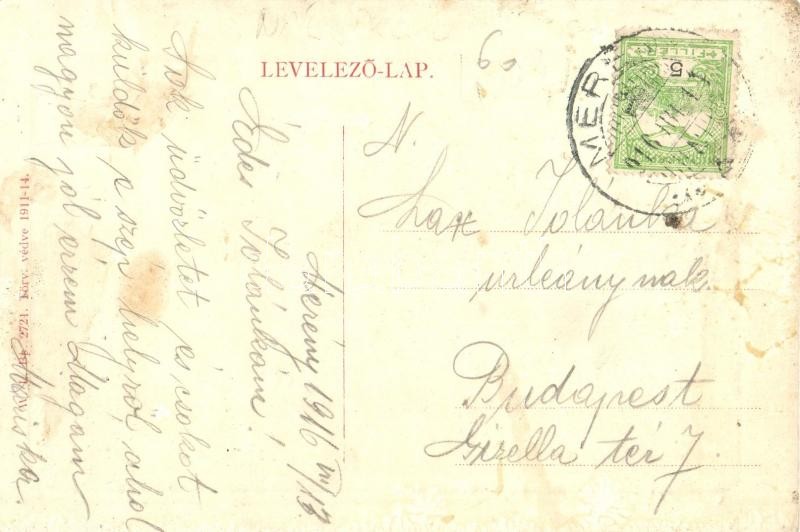 LEVELEZŐ-LAP.
60
FILLÉR
5
MER
N.
Lax Jolánka
urleánynak
Budapest
Gizella tér 7.
Merény 1916 VII/13
Édes Jolánkám!
Sok üdvözletet és csókot
küldök e szép helyről, ahol
nagyon jól érzem magam
Mariska.
2721. Törv. védve 1911-14.